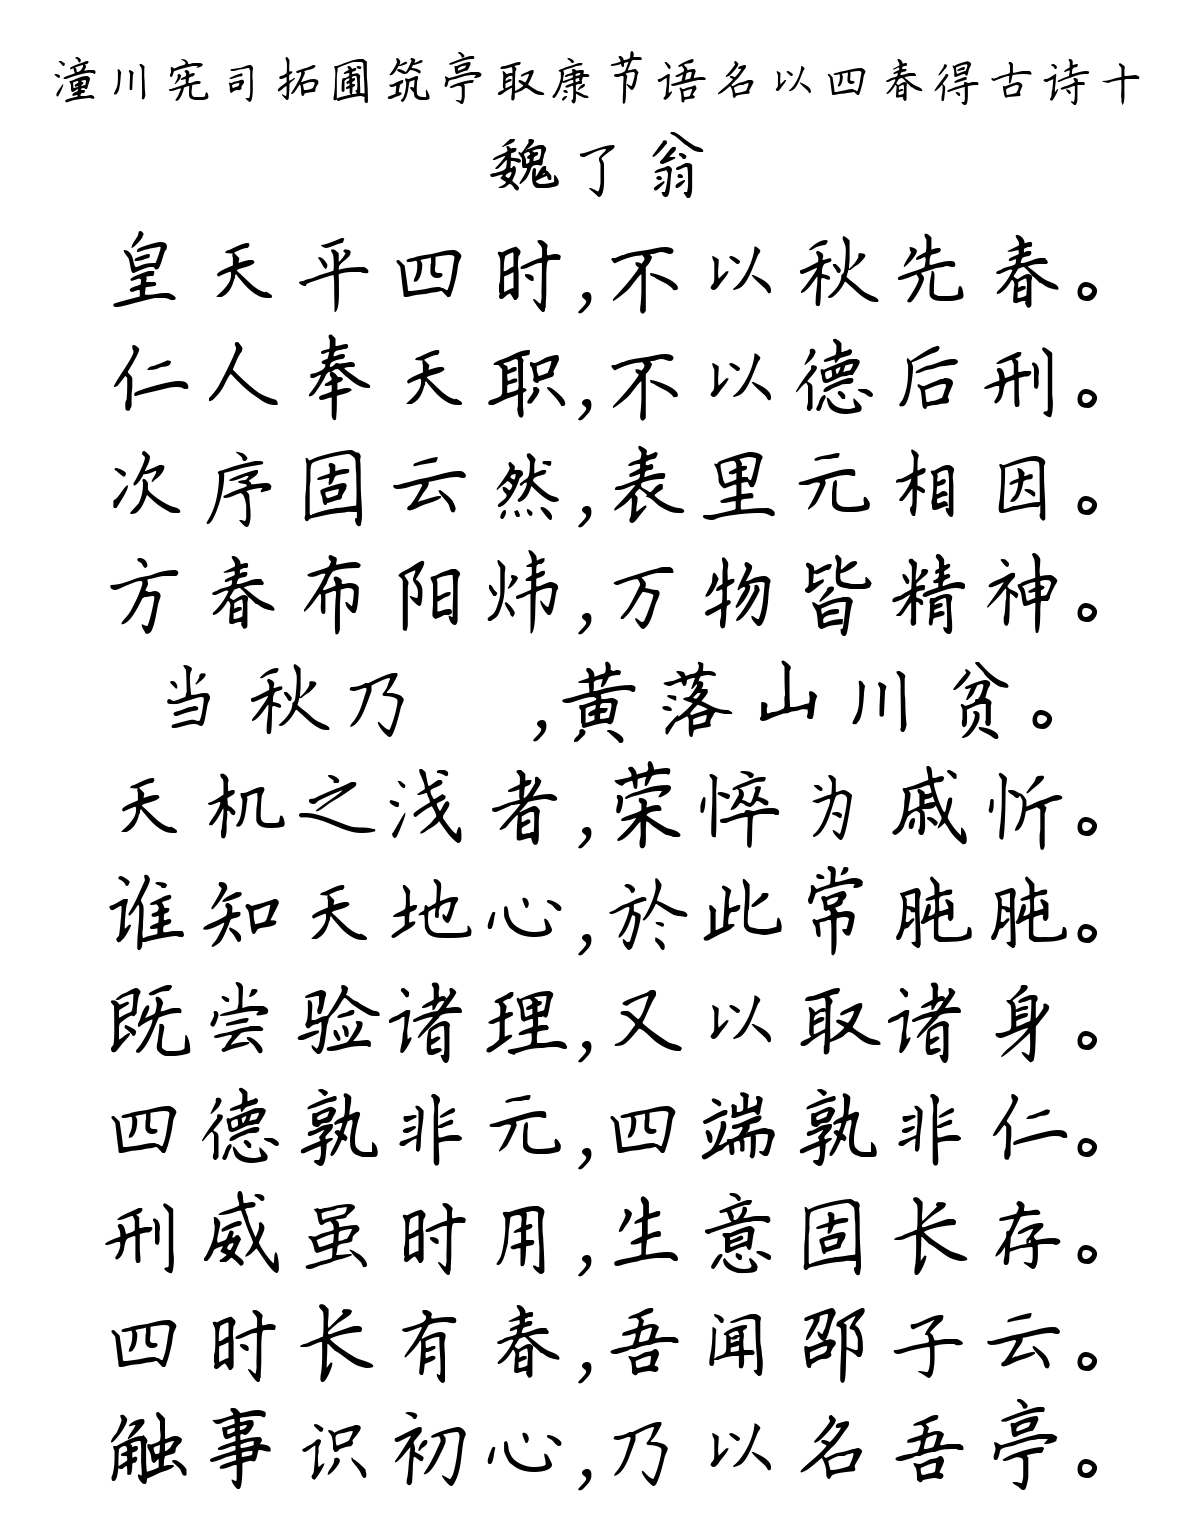 潼川宪司拓圃筑亭取康节语名以四春得古诗十
魏了翁
皇天平四时,不以秋先春。
仁人奉天职,不以德后刑。
次序固云然,表里元相因。
方春布阳炜,万物皆精神。
当秋乃 ,黄落山川贫。
天机之浅者,荣悴为戚忻。
谁知天地心,於此常肫肫。
既尝验诸理,又以取诸身。
四德孰非元,四端孰非仁。
刑威虽时用,生意固长存。
四时长有春,吾闻邵子云。
触事识初心,乃以名吾亭。